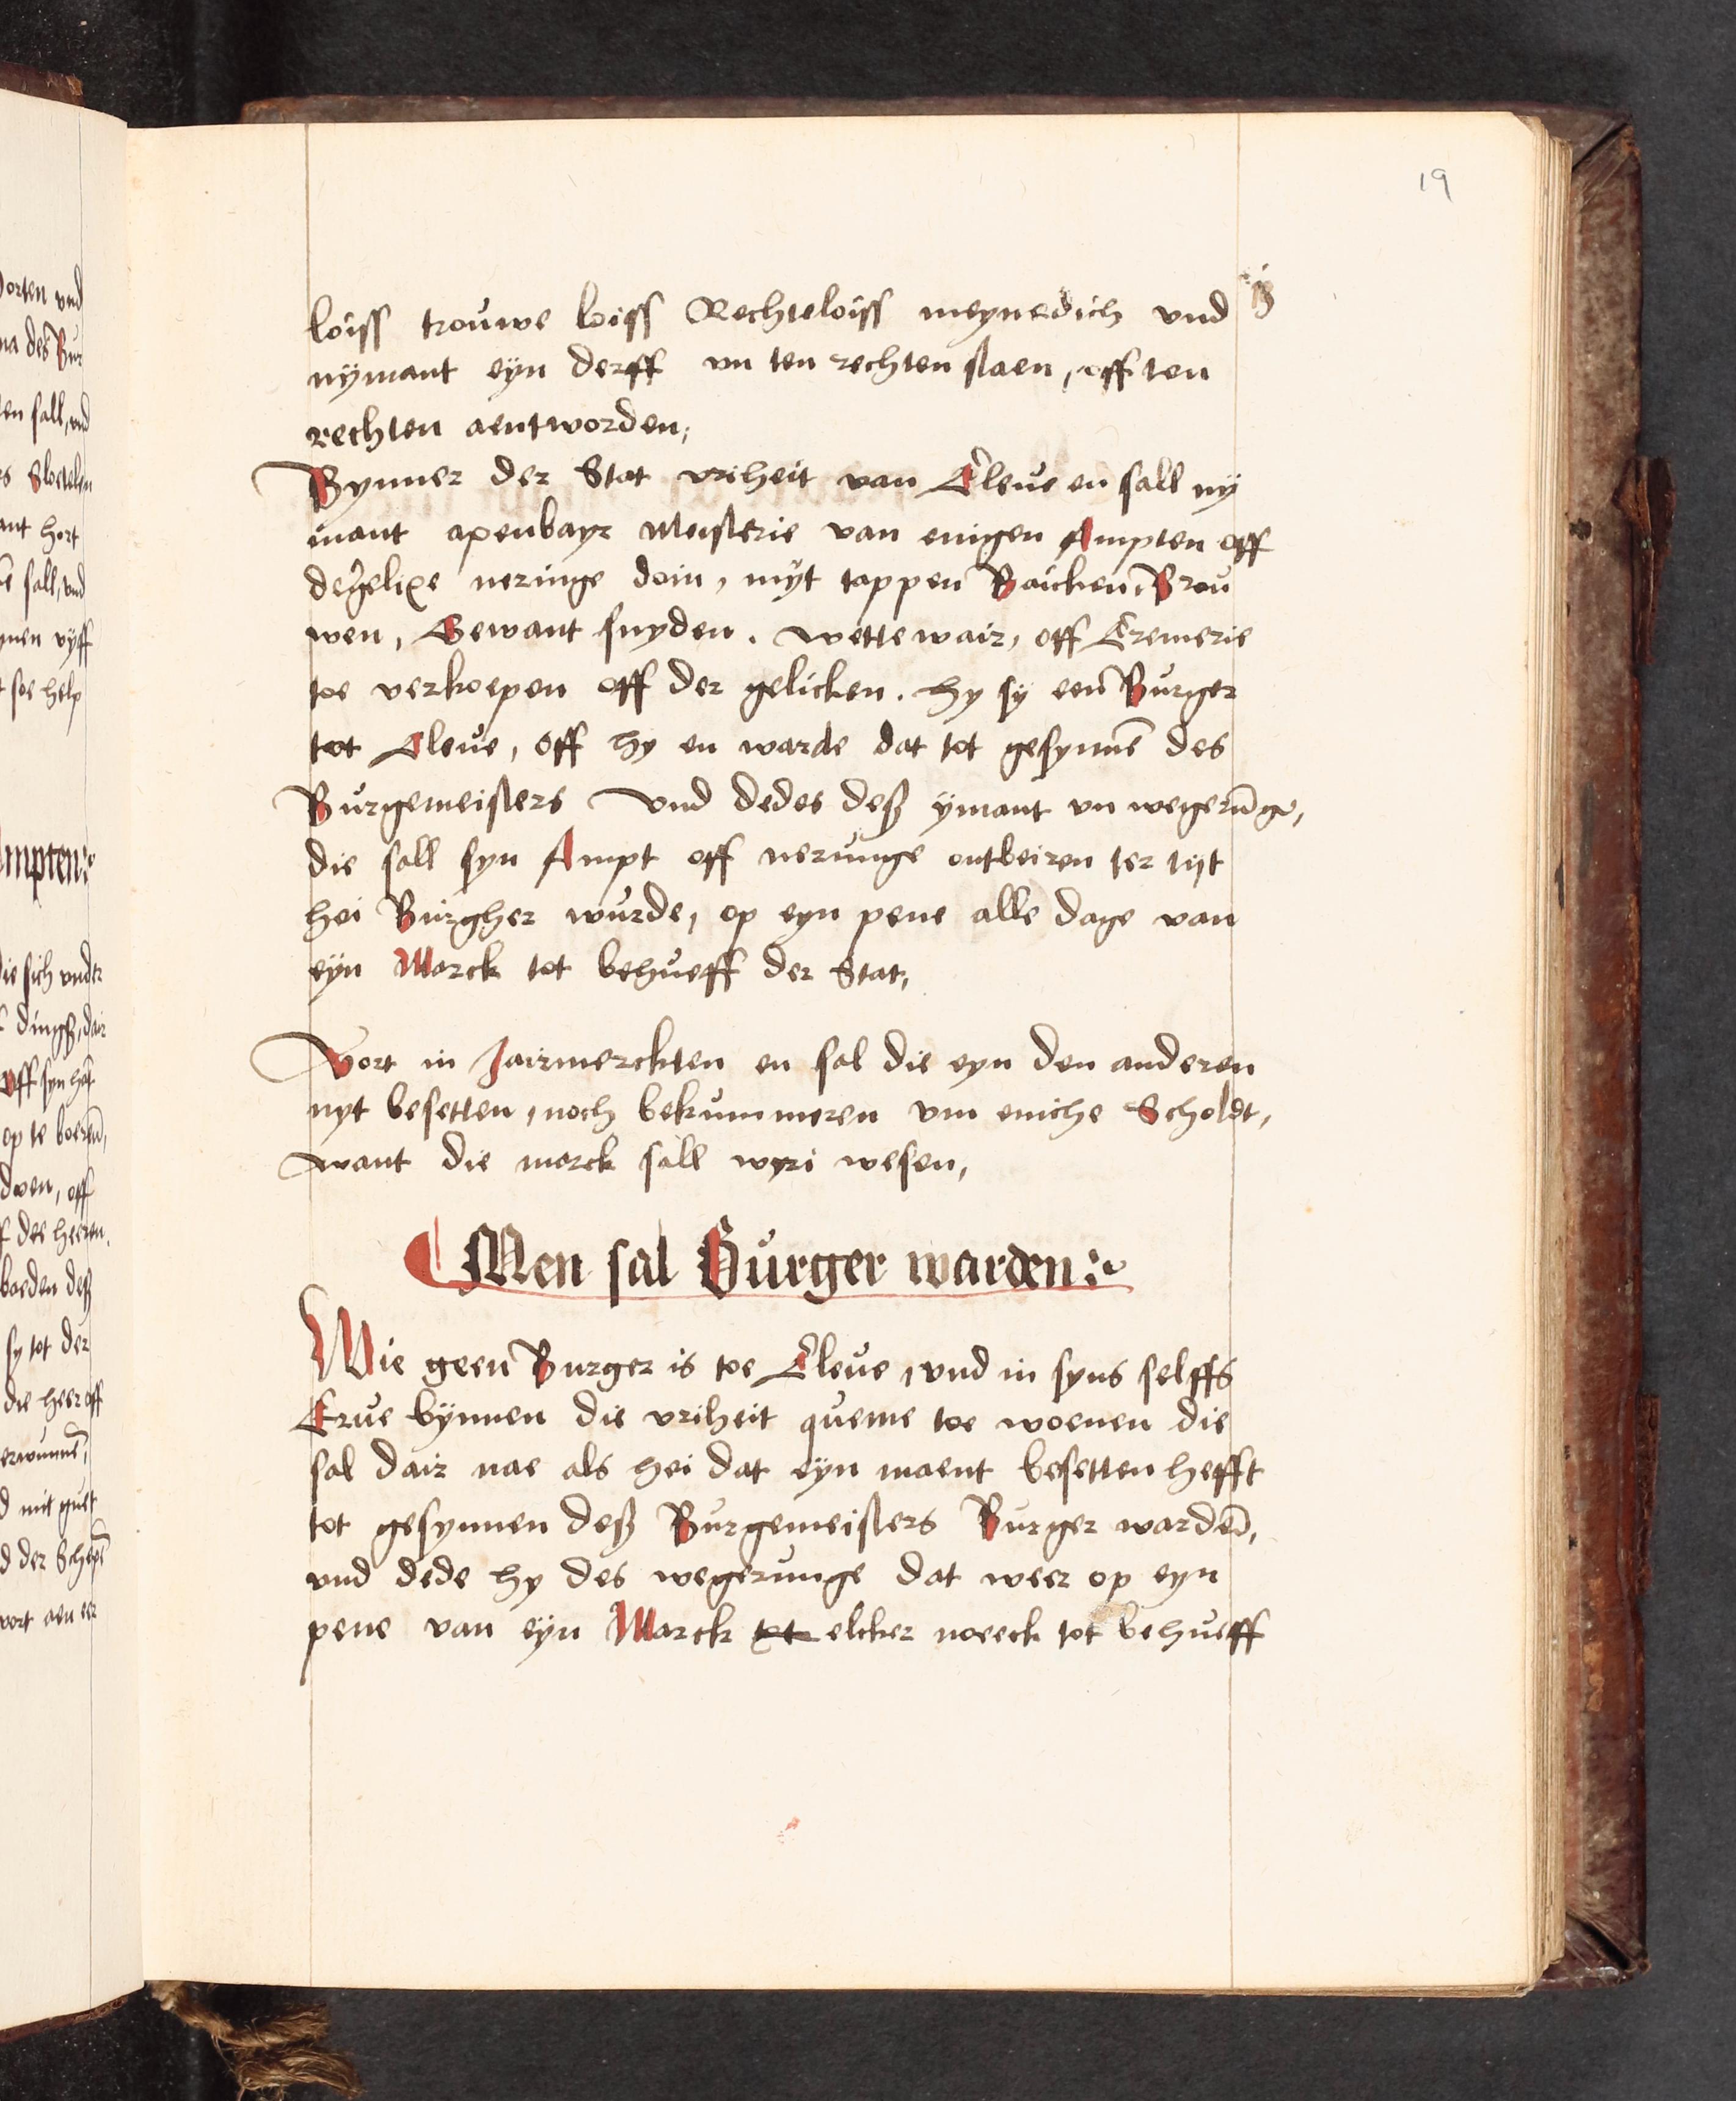 19
loiss trouwe loiss Rechteloiss meyneedich vnd
nÿmant eÿn derff vn ten rechten staen, off ten
rechten aentworden;
Bynner der Stat vriheit van Cleue en sall nÿ
mant apenbayr Meisterie van enigen Ampten off
degelixe neringe doin, mÿt tappen Baicken, Brou
wen, Gewant snyden. wettewair, off Cremerie
toe verkoepen off der gelicken. hy sÿ een Burger
tot Cleue, off hy en warde dat tot gesynnē des
Burgemeisters vnd dedes deß ÿmant vn wegerūge,
die sall syn Ampt off nerunge ontbeiren ter tijt
hei Burgher wurde, op eyn pene alle dage van
eÿn Marck tot behueff der Stat,
Vort in Jairmerckten en sal die eyn den anderen
nyt besetten, noch bekummeren vm eniche Scholdt,
want die marck sall wyri wesen,
Men sal Burger warden
Wie geen Burger is toe Cleue, vnd in syns selffs
Erue bÿnnen die vriheit queme toe woenen die
sal dair nae als hei dat eÿn maent besetten hefft
tot gesynnen deß Burgemeisters Burger wardē,
vnd dede hy des wegerunge dat weer op eyn
pene van eÿn Marck tot elcker noeeck tot behueff
orten vnd
na des Bur
en sall, vnd
s Sloetelen
ant hort
sall, vnd
ynen vÿff
soe help
mpten
die sich vnder
dingß, dair
off syn
op te boeren,
dwen, off
des heeren.
boeden deß
sy tot der
die heer off
erwunnē,
d mit guet
d der Schepē
vort aen eer